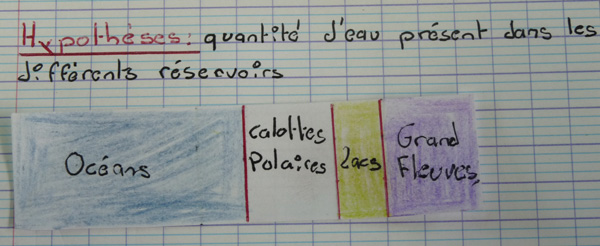 Hypothèses: quantité d'eau présent dans les
différents réservoirs
Océans
calottes
Polaires
lacs
Grand
Fleuves